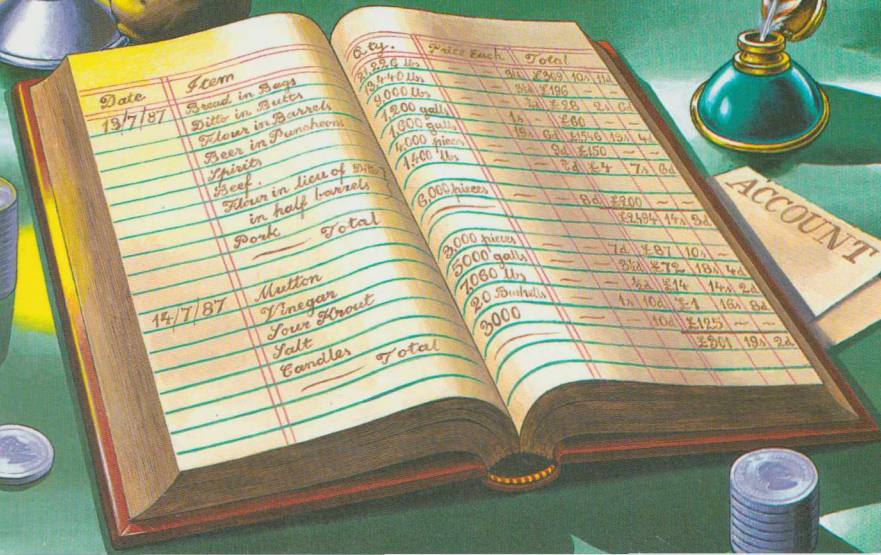 Date Item Q.ty. Price Each Total
13/7/87 Bread in Bags 21,226 lbs — 3½d £309 10s 11d
Ditto in Butts 13,440 lbs — 3½d £196 — —
Flour in Barrels 9,000 lbs — ¾d £28 2s 6d
Beer in Puncheons 1,200 galls 1s — £60 — —
Spirits 1,600 galls 19s 6d £1546 13s 4d
Beef. 4,000 pieces — 9d £150 — —
Flour in lieu of Ditto } 1400 lbs — ¾d £4 7s 6d
in half barrels
Pork 6,000 pieces — 8d £200 — —
— Total £2494 14s 3d
14/7/87 Mutton 3,000 pieces — 7d £87 10s —
Vinegar 5000 galls — 3½d £72 18s 4d
Sour Krout 7,060 lbs — ½d £14 14s 2d
Salt 20 Bushells 1s 10d £1 16s 8d
Candles 3000 — 10d £125 — —
— Total £301 19s 2d
ACCOUNT